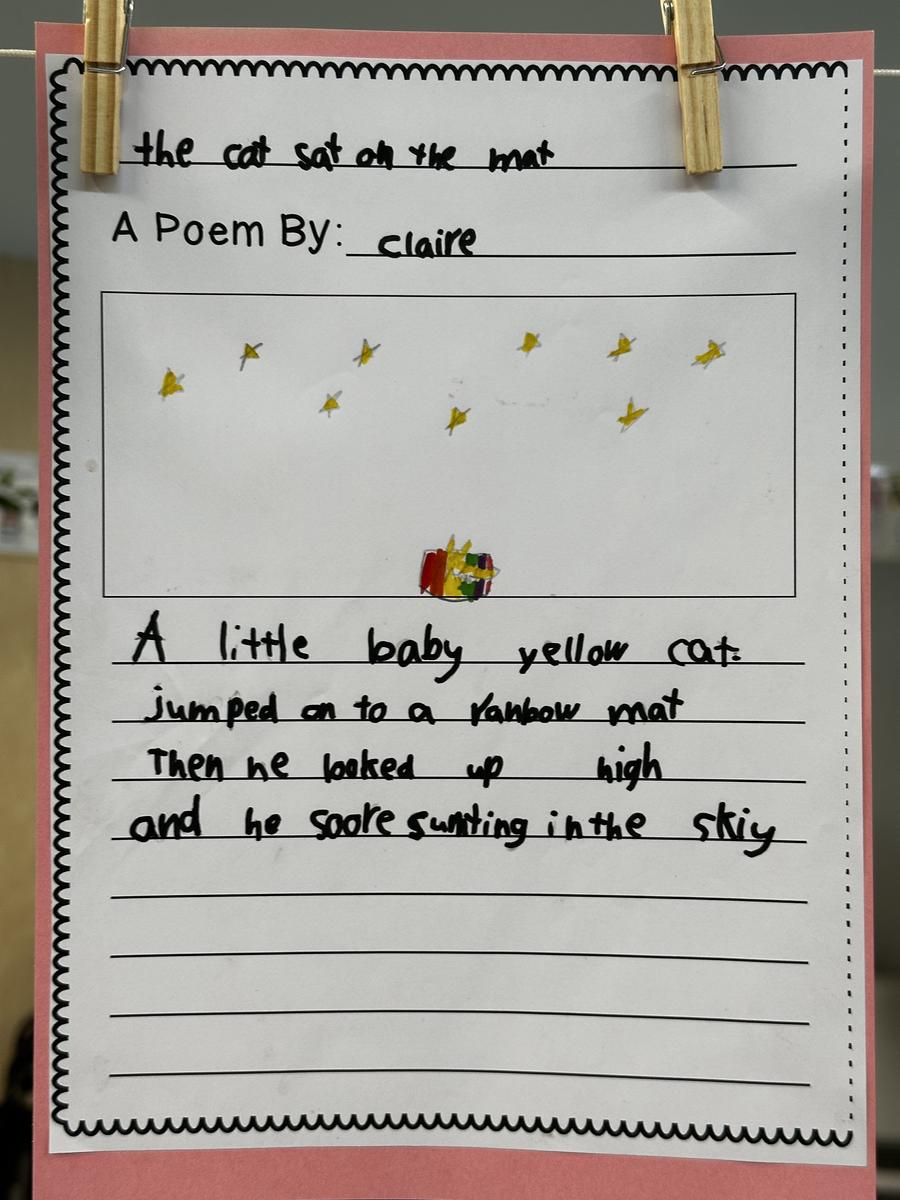 the cat sat on the mat
A Poem By: claire
A little baby yellow cat.
jumped on to a ranbow mat
Then he looked up high
and he soore sumting in the skiy